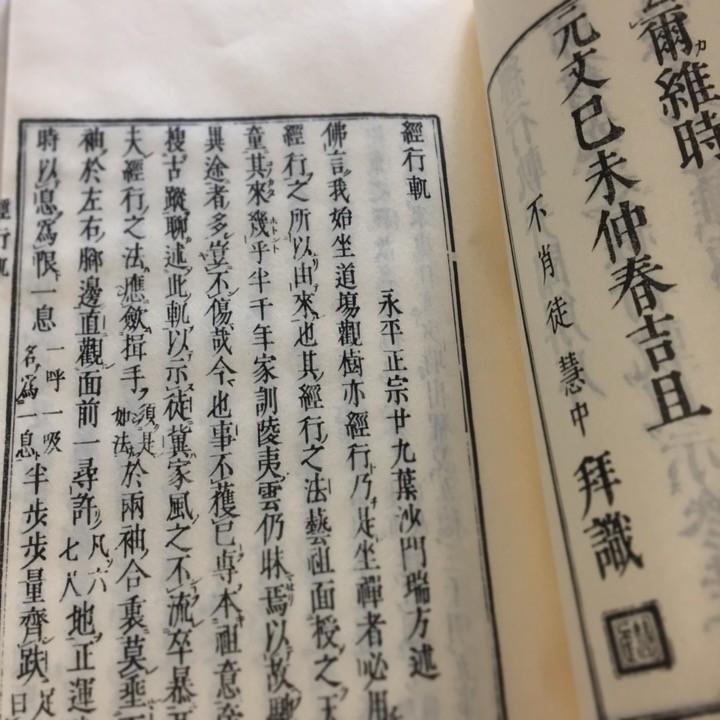 爾維時
元文已未仲春吉且
不肖徒慧中
拜識
經行軌
永平正宗廿九葉沙門瑞方述
佛言我始坐道場觀樹亦經行乃是坐禪者必用
經行之所以由來也其經行之法藝祖面授之天
童其來幾乎半千年家訓陵夷雲仍昧焉以故
異途者多豈不傷哉今也事不獲已專本祖意
搜古蹤聊述此軌以示徒冀家風之不流卒暴
夫經行之法應斂揖手須是如法於兩袖合裏莫垂
袖於左右脚邊直觀面前一尋許凡六七人地正運
時以息爲限一息一呼一吸名爲一息半步步量齊趺
經行軌